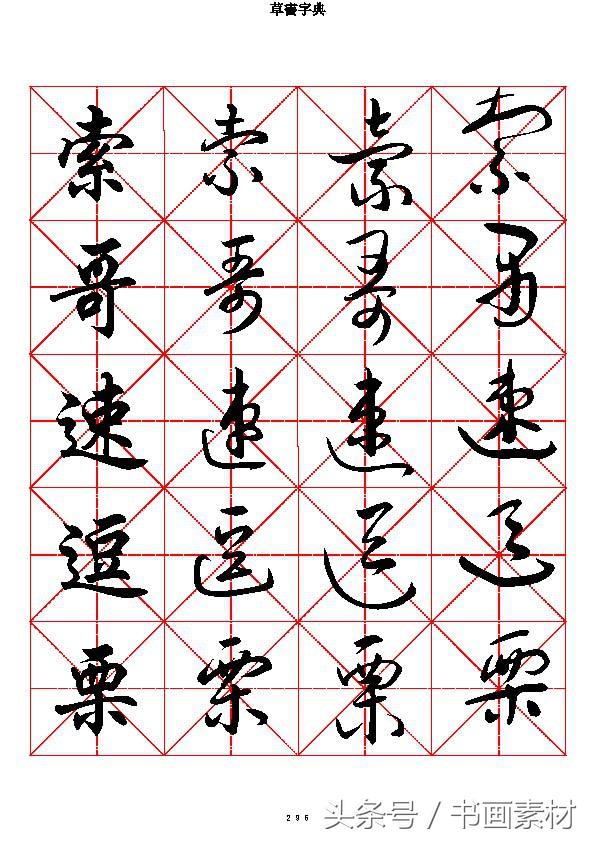 草書字典
索 索 索 索
哥 哥 哥 哥
速 速 速 速
逗 逗 逗 逗
栗 栗 栗 栗
296
头条号 / 书画素材